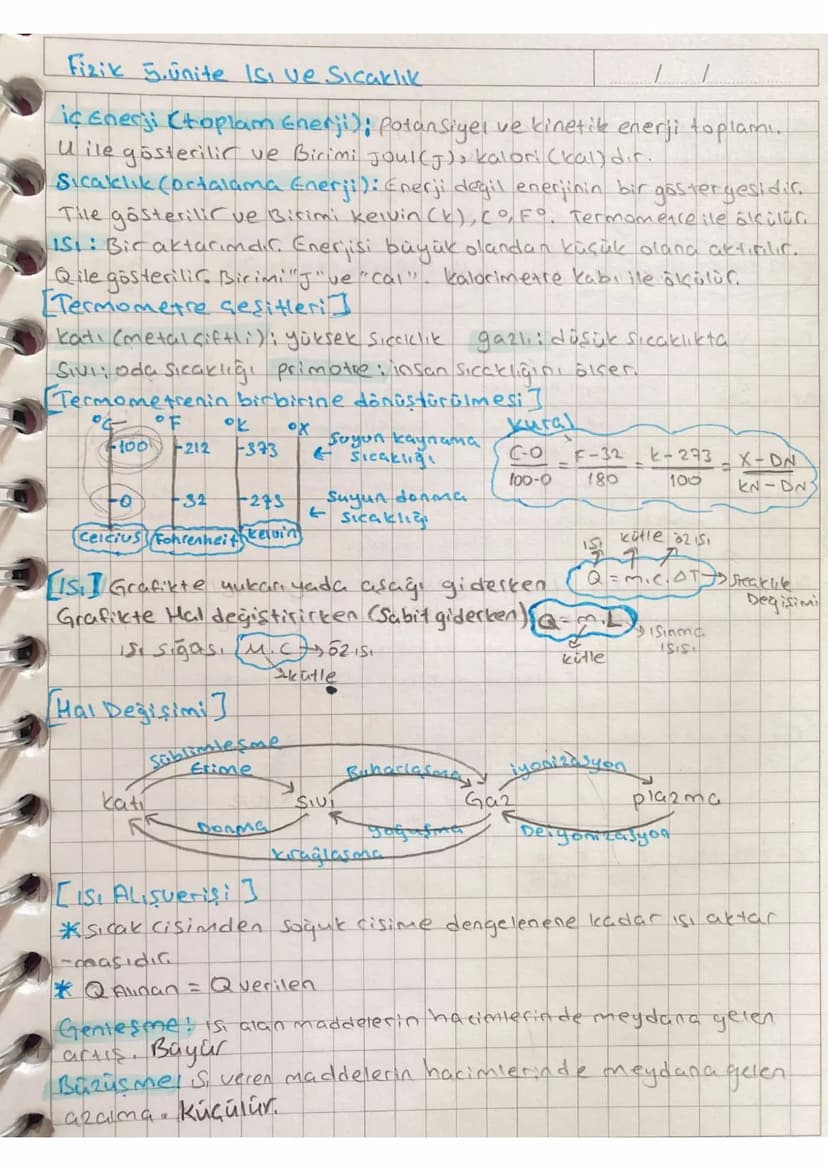 Fizik 5.ünite Isı ve Sıcaklık
/ /
İç Enerji (toplam Enerji); Potansiyel ve kinetik enerji toplamı.
U ile gösterilir ve Birimi Joul(J), kalori (kal)dır.
Sıcaklık (ortalama Enerji): Enerji değil enerjinin bir göstergesidir.
T ile gösterilir ve Birimi kelvin (k), C°, F°. Termometre ile ölçülür.
ISI: Bir aktarımdır. Enerjisi büyük olandan küçük olana aktırılır.
Q ile gösterilir. Birimi "J" ve "cal". kalorimetre kabı ile ölçülür.
[Termometre Çeşitleri]
Katı (metal çiftli); yüksek sıcaklık gazlı: düşük sıcaklıkta
Sıvı; oda sıcaklığı primotre: insan sıcaklığını ölçer.
[Termometrenin birbirine dönüştürülmesi]
°C °F °K °X
100 212 373 ← Suyun kaynama sıcaklığı
0 32 273 ← Suyun donma sıcaklığı
Celcius Fahrenheit kelvin
Kural
C-0 / 100-0 = F-32 / 180 = k-273 / 100 = X-DN / KN-DN
ısı kütle öz ısı
[Isı] Grafikte yukarı yada aşağı giderken Q = m.c.ΔT → Sıcaklık Değişimi
Grafikte Hal değiştirirken (Sabit giderken) Q = m.L
→ ısınma ısısı
kütle
ısı sığası M.C → öz ısı
→ kütle
[Hal Değişimi]
Süblimleşme
Erime Buharlaşma iyonizasyon
Katı Sıvı Gaz plazma
Donma yoğuşma Deiyonizasyon
kırağılaşma
[ısı Alışverişi]
* sıcak cisimden soğuk cisime dengelenene kadar ısı aktar
-masıdır.
* Q Alınan = Q verilen
Genleşme: ısı alan maddelerin hacimlerinde meydana gelen
artış. Büyür
Büzüşme ısı veren maddelerin hacimlerinde meydana gelen
azalma. Küçülür.